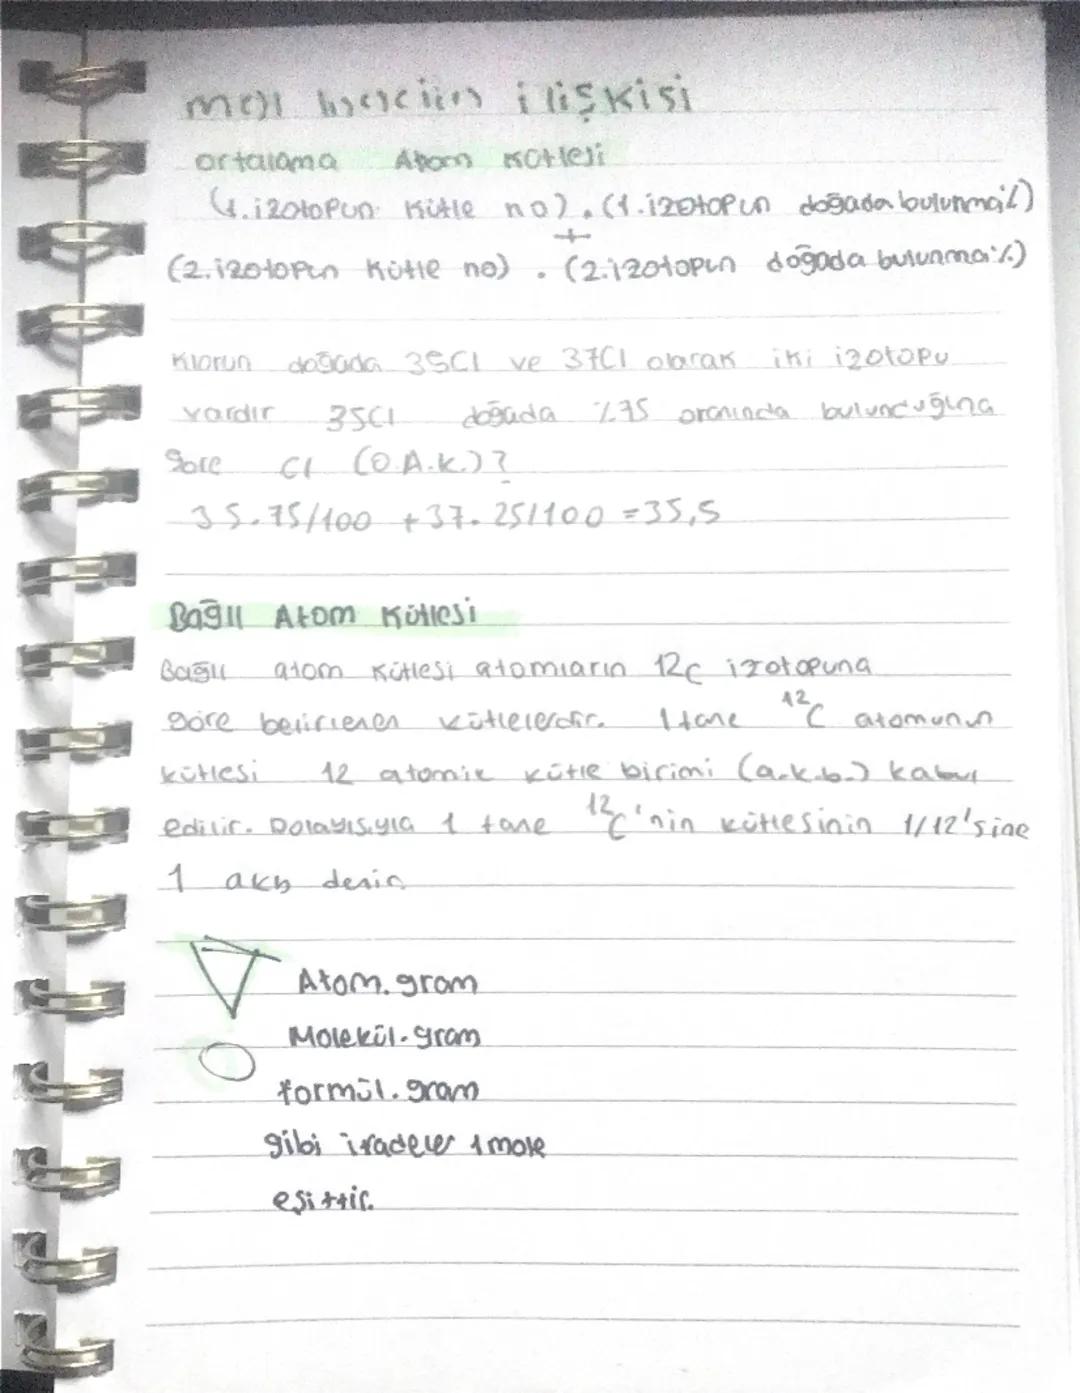 mol hacim ilişkisi
ortalama Atom kütlesi
(1.izotopun kütle no).(1.izotopun doğada bulunma%)
+
(2.izotopun kütle no).(2.izotopun doğada bulunma%)
Klorun doğada 35Cl ve 37Cl olarak iki izotopu
vardır 35Cl doğada %75 oranında bulunduğuna
göre Cl (O.A.K.)?
35.75/100 + 37.25/100 = 35,5
Bağıl Atom Kütlesi
Bağıl atom kütlesi atomların 12C izotopuna
göre belirlenen kütlelerdir. 1 tane ¹²C atomunun
kütlesi 12 atomik kütle birimi (a.k.b.) kabul
edilir. Dolayısıyla 1 tane ¹²C'nin kütlesinin 1/12'sine
1 akb denir
Atom.gram
Molekül.gram
formül.gram
gibi ifadeler 1 mole
eşittir.